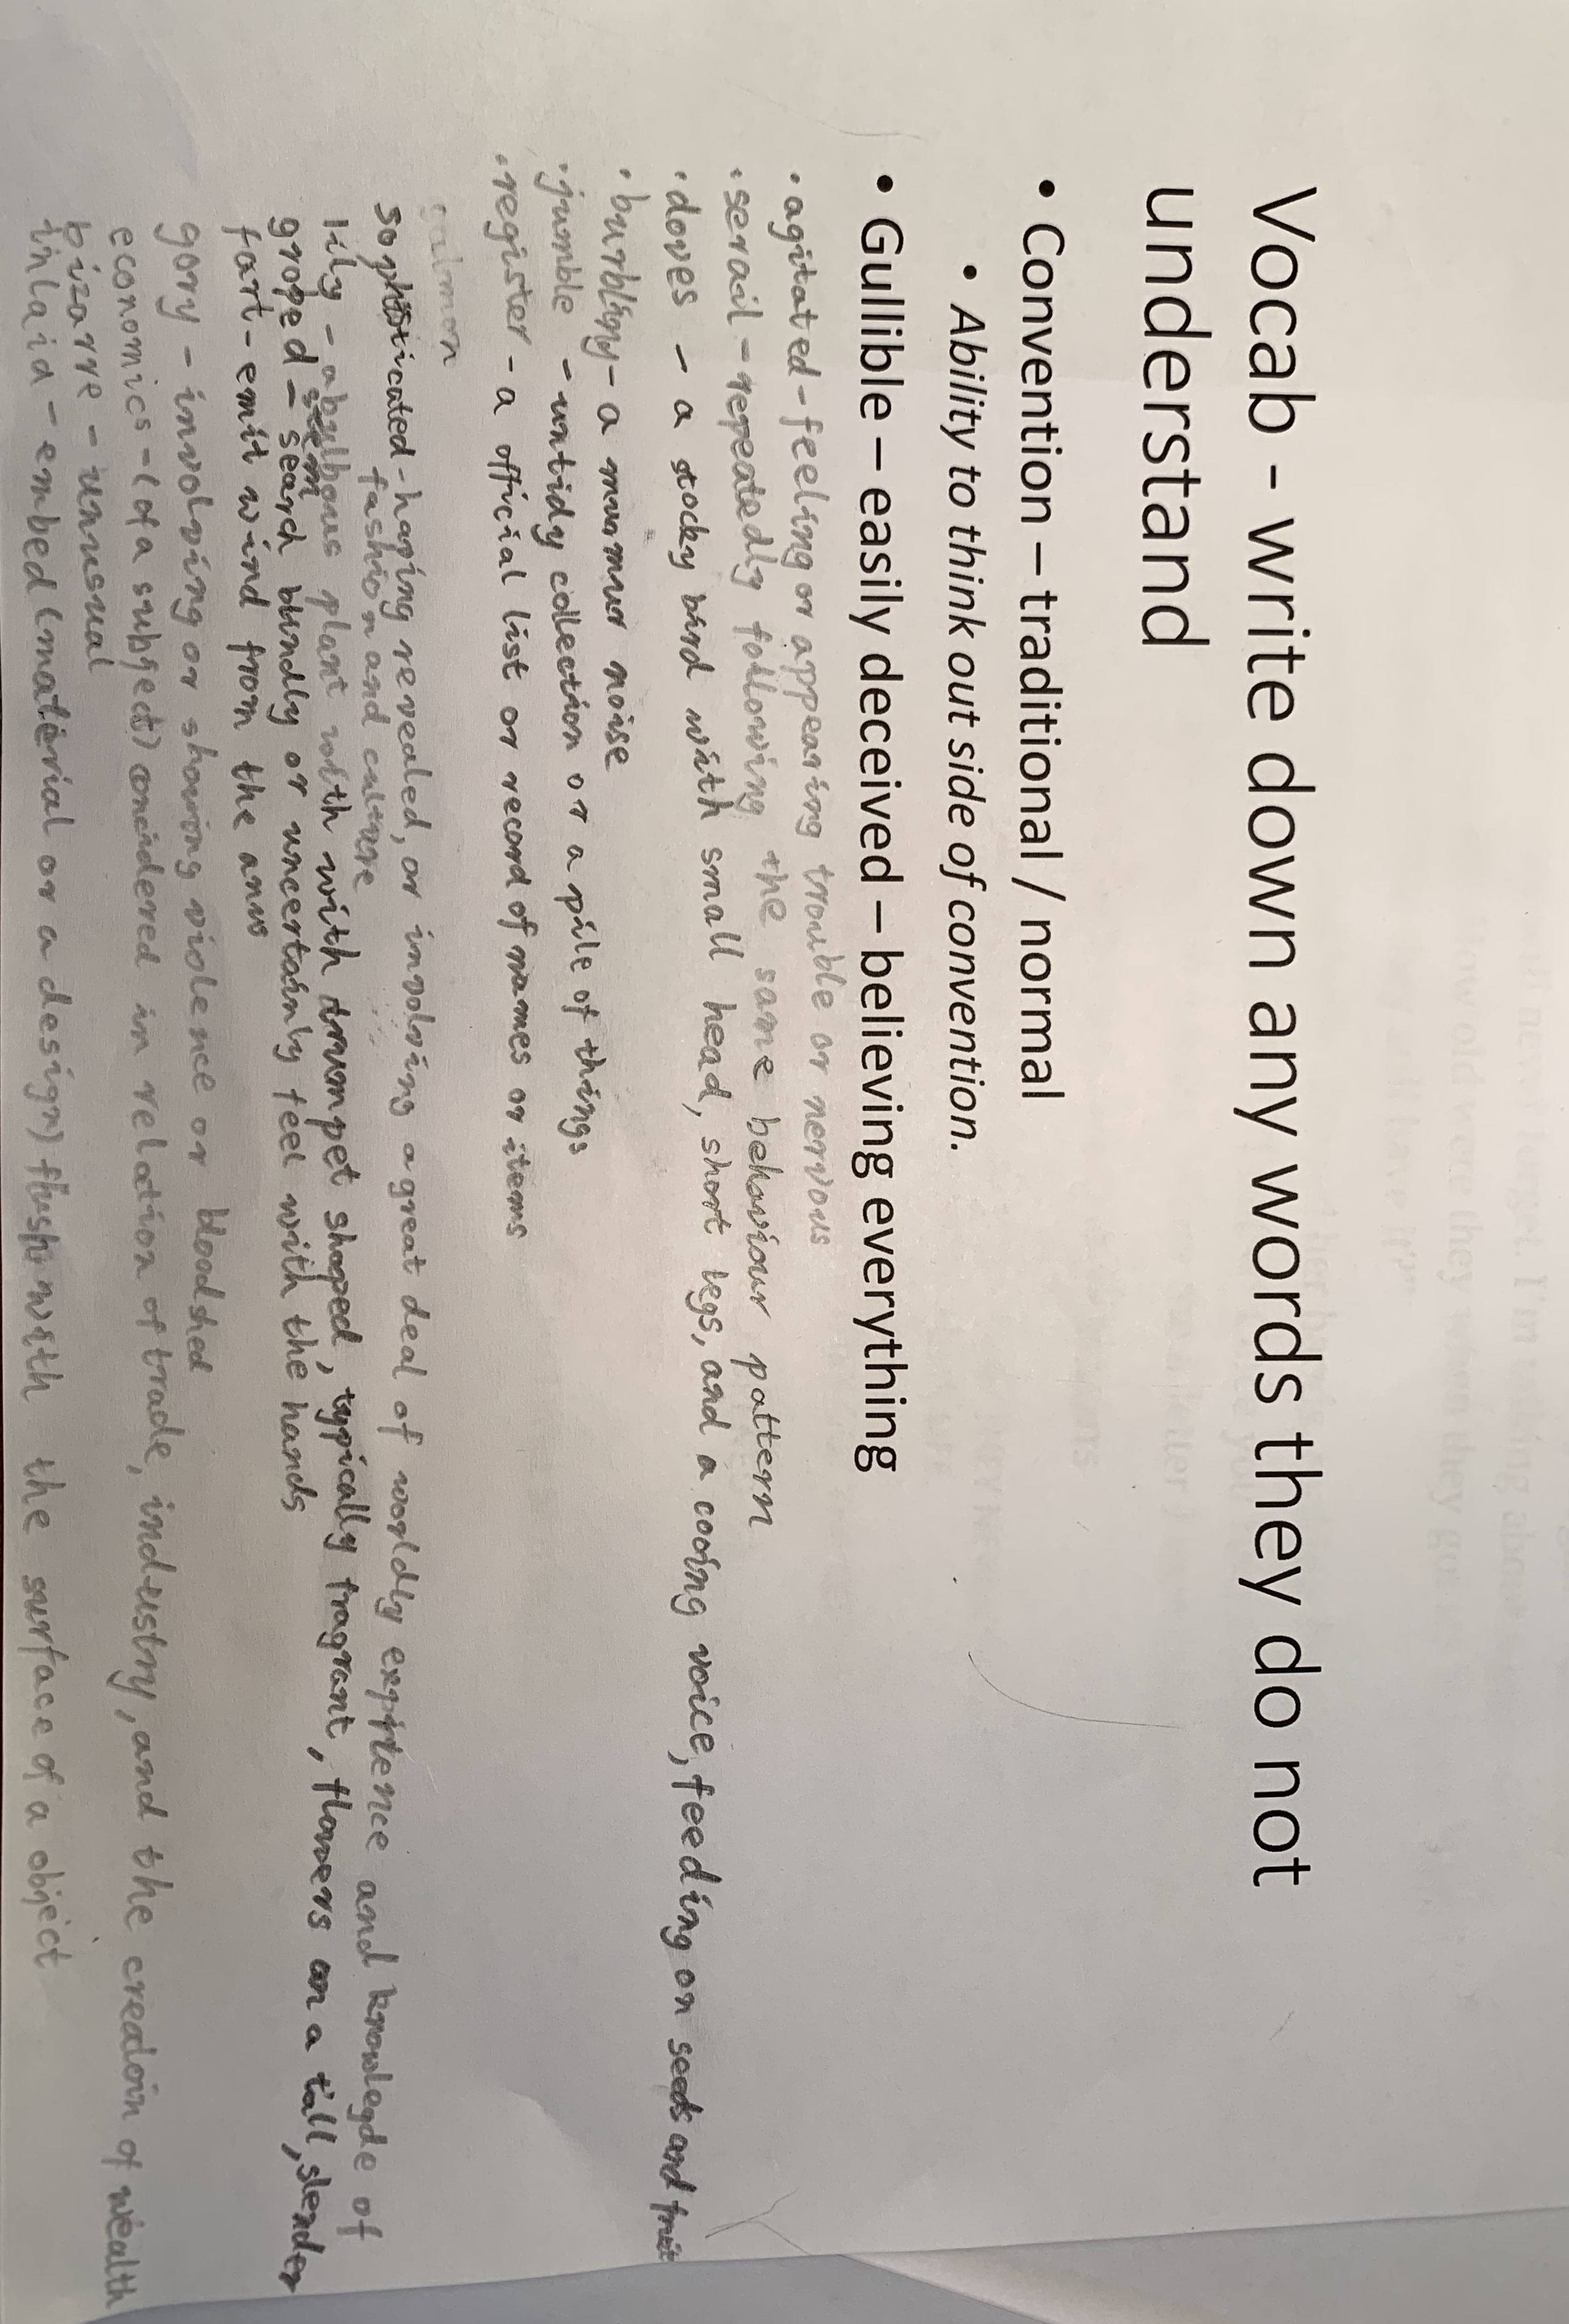 Vocab - write down any words they do not
understand
• Convention – traditional / normal
• Ability to think out side of convention.
• Gullible – easily deceived – believing everything
• agitated - feeling or appearing trouble or nervous
• serail - repeatedly following the same behaviour pattern
• doves - a stocky bird with small head, short legs, and a cooing voice, feeding on seeds and fruit
• burbling - a murmur noise
• jumble - untidy collection or a pile of things
• register - a official list or record of names or items
salmon
sophisticated - haping revealed, or involving a great deal of worldly expirence and knowlegde of
fashion and culture
lily - a bulbous plant with with trumpet shaped, typically fragrant, flowers on a tall, slender
stem
groped - search blindly or uncertainly feel with the hands
fart - emit wind from the anus
gory - involving or showing violence or bloodshed
economics - (of a subject) concidered in relation of trade, industry, and the creatoin of wealth
bizarre - unusual
inlaid - embed (material or a design) flush with the surface of a object